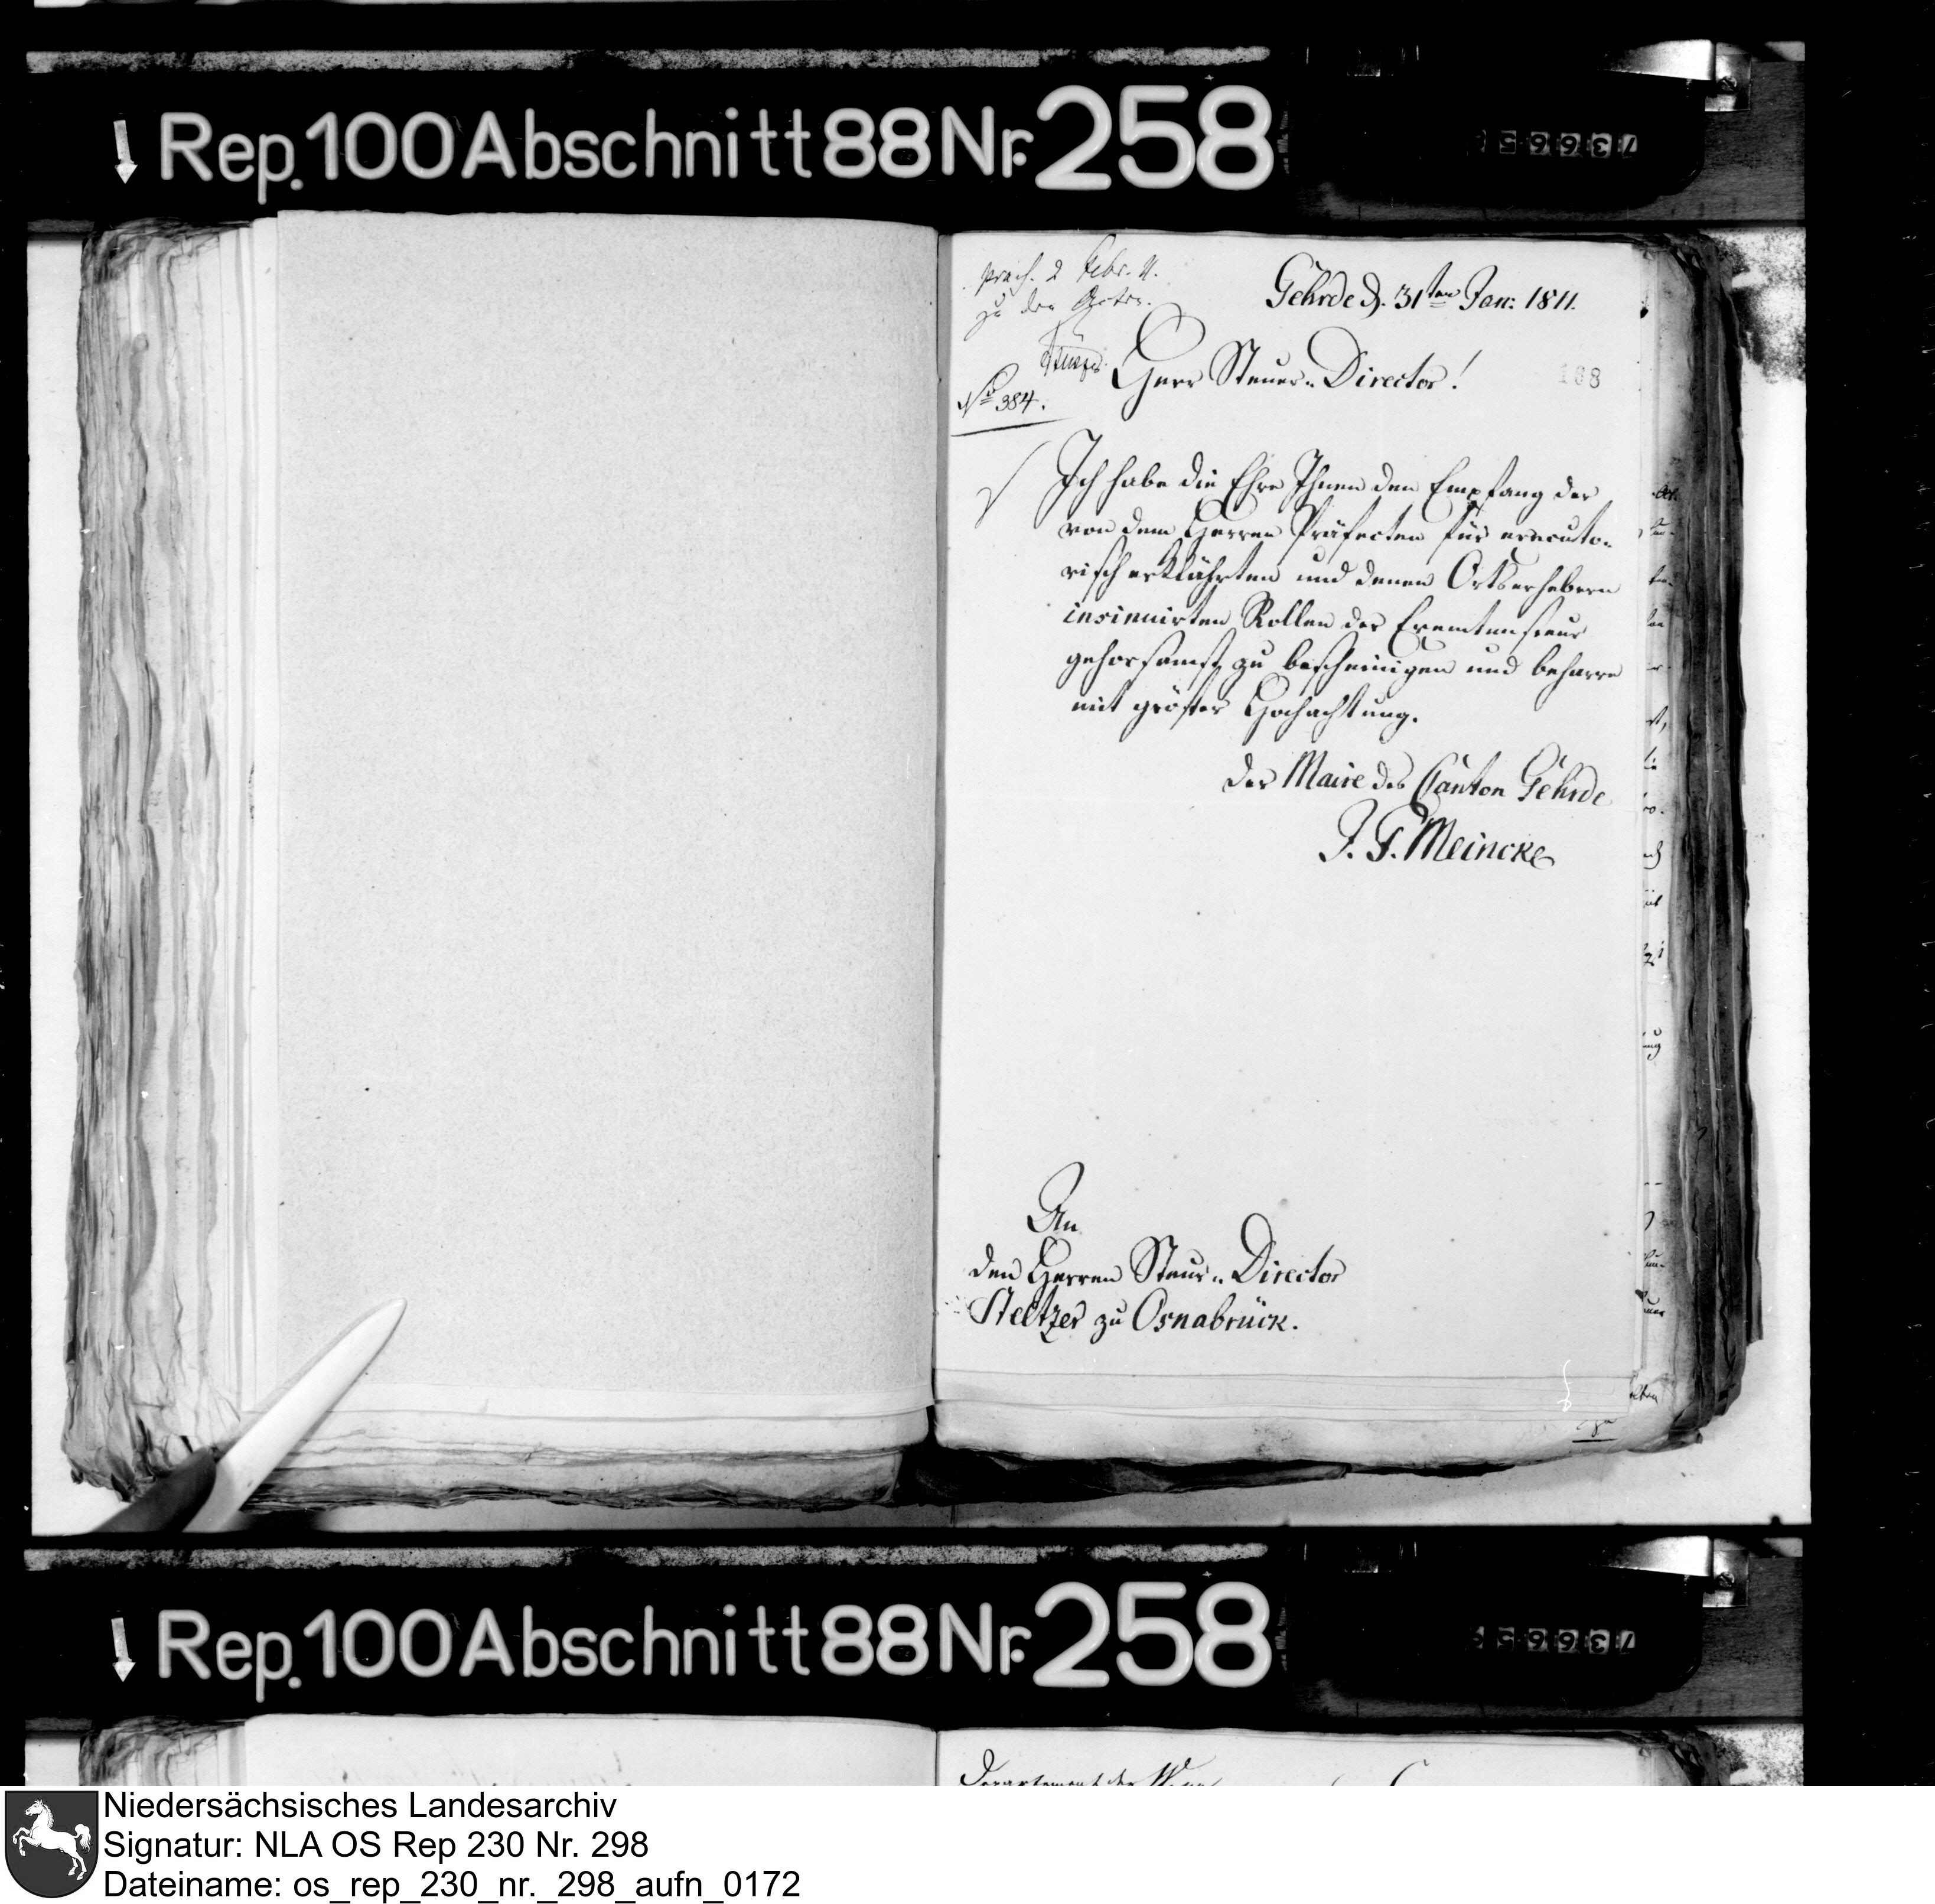 Rep. 100 Abschnitt 88 Nr. 258
präs. 2 Febr. 11.
zu den Acten.
Gehrde d. 31ten Jan: 1811.
Herr Steuer-Director!
168
No 384.
Ich habe die Ehre Ihnen den Empfang der
von dem Herren Präfecten für executo-
risch erklährten und denen Ortserhebern
insinuirten Rollen der Exemtensteur
gehorsamst zu bescheinigen und beharre
mit gröster Hochachtung.
Der Maire des Canton Gehrde
J. G. Meincke
An
den Herren Steur-Director
Steltzer zu Osnabrück.
Rep. 100 Abschnitt 88 Nr. 258
Niedersächsisches Landesarchiv
Signatur: NLA OS Rep 230 Nr. 298
Dateiname: os_rep_230_nr._298_aufn_0172